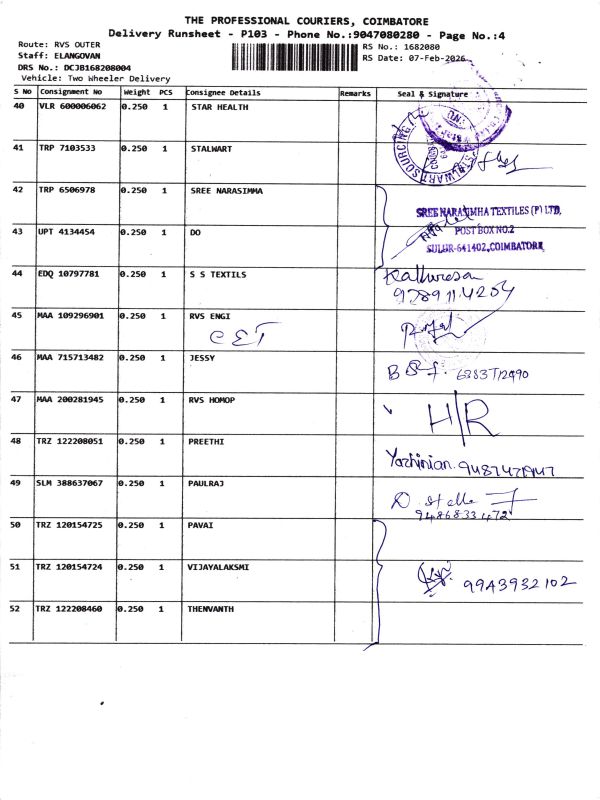 THE PROFESSIONAL COURIERS, COIMBATORE
Delivery Runsheet - P103 - Phone No.:9047080280 - Page No.:4
Route: RVS OUTER
Staff: ELANGOVAN
DRS No.: DCJB168208004
Vehicle: Two Wheeler Delivery
RS No.: 1682080
RS Date: 07-Feb-2026
S No Consignment No Weight PCS Consignee Details Remarks Seal & Signature
40 VLR 600006062 0.250 1 STAR HEALTH
41 TRP 7103533 0.250 1 STALWART
42 TRP 6506978 0.250 1 SREE NARASIMMA
SREE NARASIMHA TEXTILES (P) LTD,
43 UPT 4134454 0.250 1 DO
POST BOX NO.2
SULUR-641402, COIMBATORE
44 EDQ 10797781 0.250 1 S S TEXTILS
45 MAA 109296901 0.250 1 RVS ENGI
CET
46 MAA 715713482 0.250 1 JESSY
47 MAA 200281945 0.250 1 RVS HOMOP
H/R
48 TRZ 122208051 0.250 1 PREETHI
49 SLM 388637067 0.250 1 PAULRAJ
9486833472
50 TRZ 120154725 0.250 1 PAVAI
51 TRZ 120154724 0.250 1 VIJAYALAKSMI
9943932102
52 TRZ 122208460 0.250 1 THENVANTH